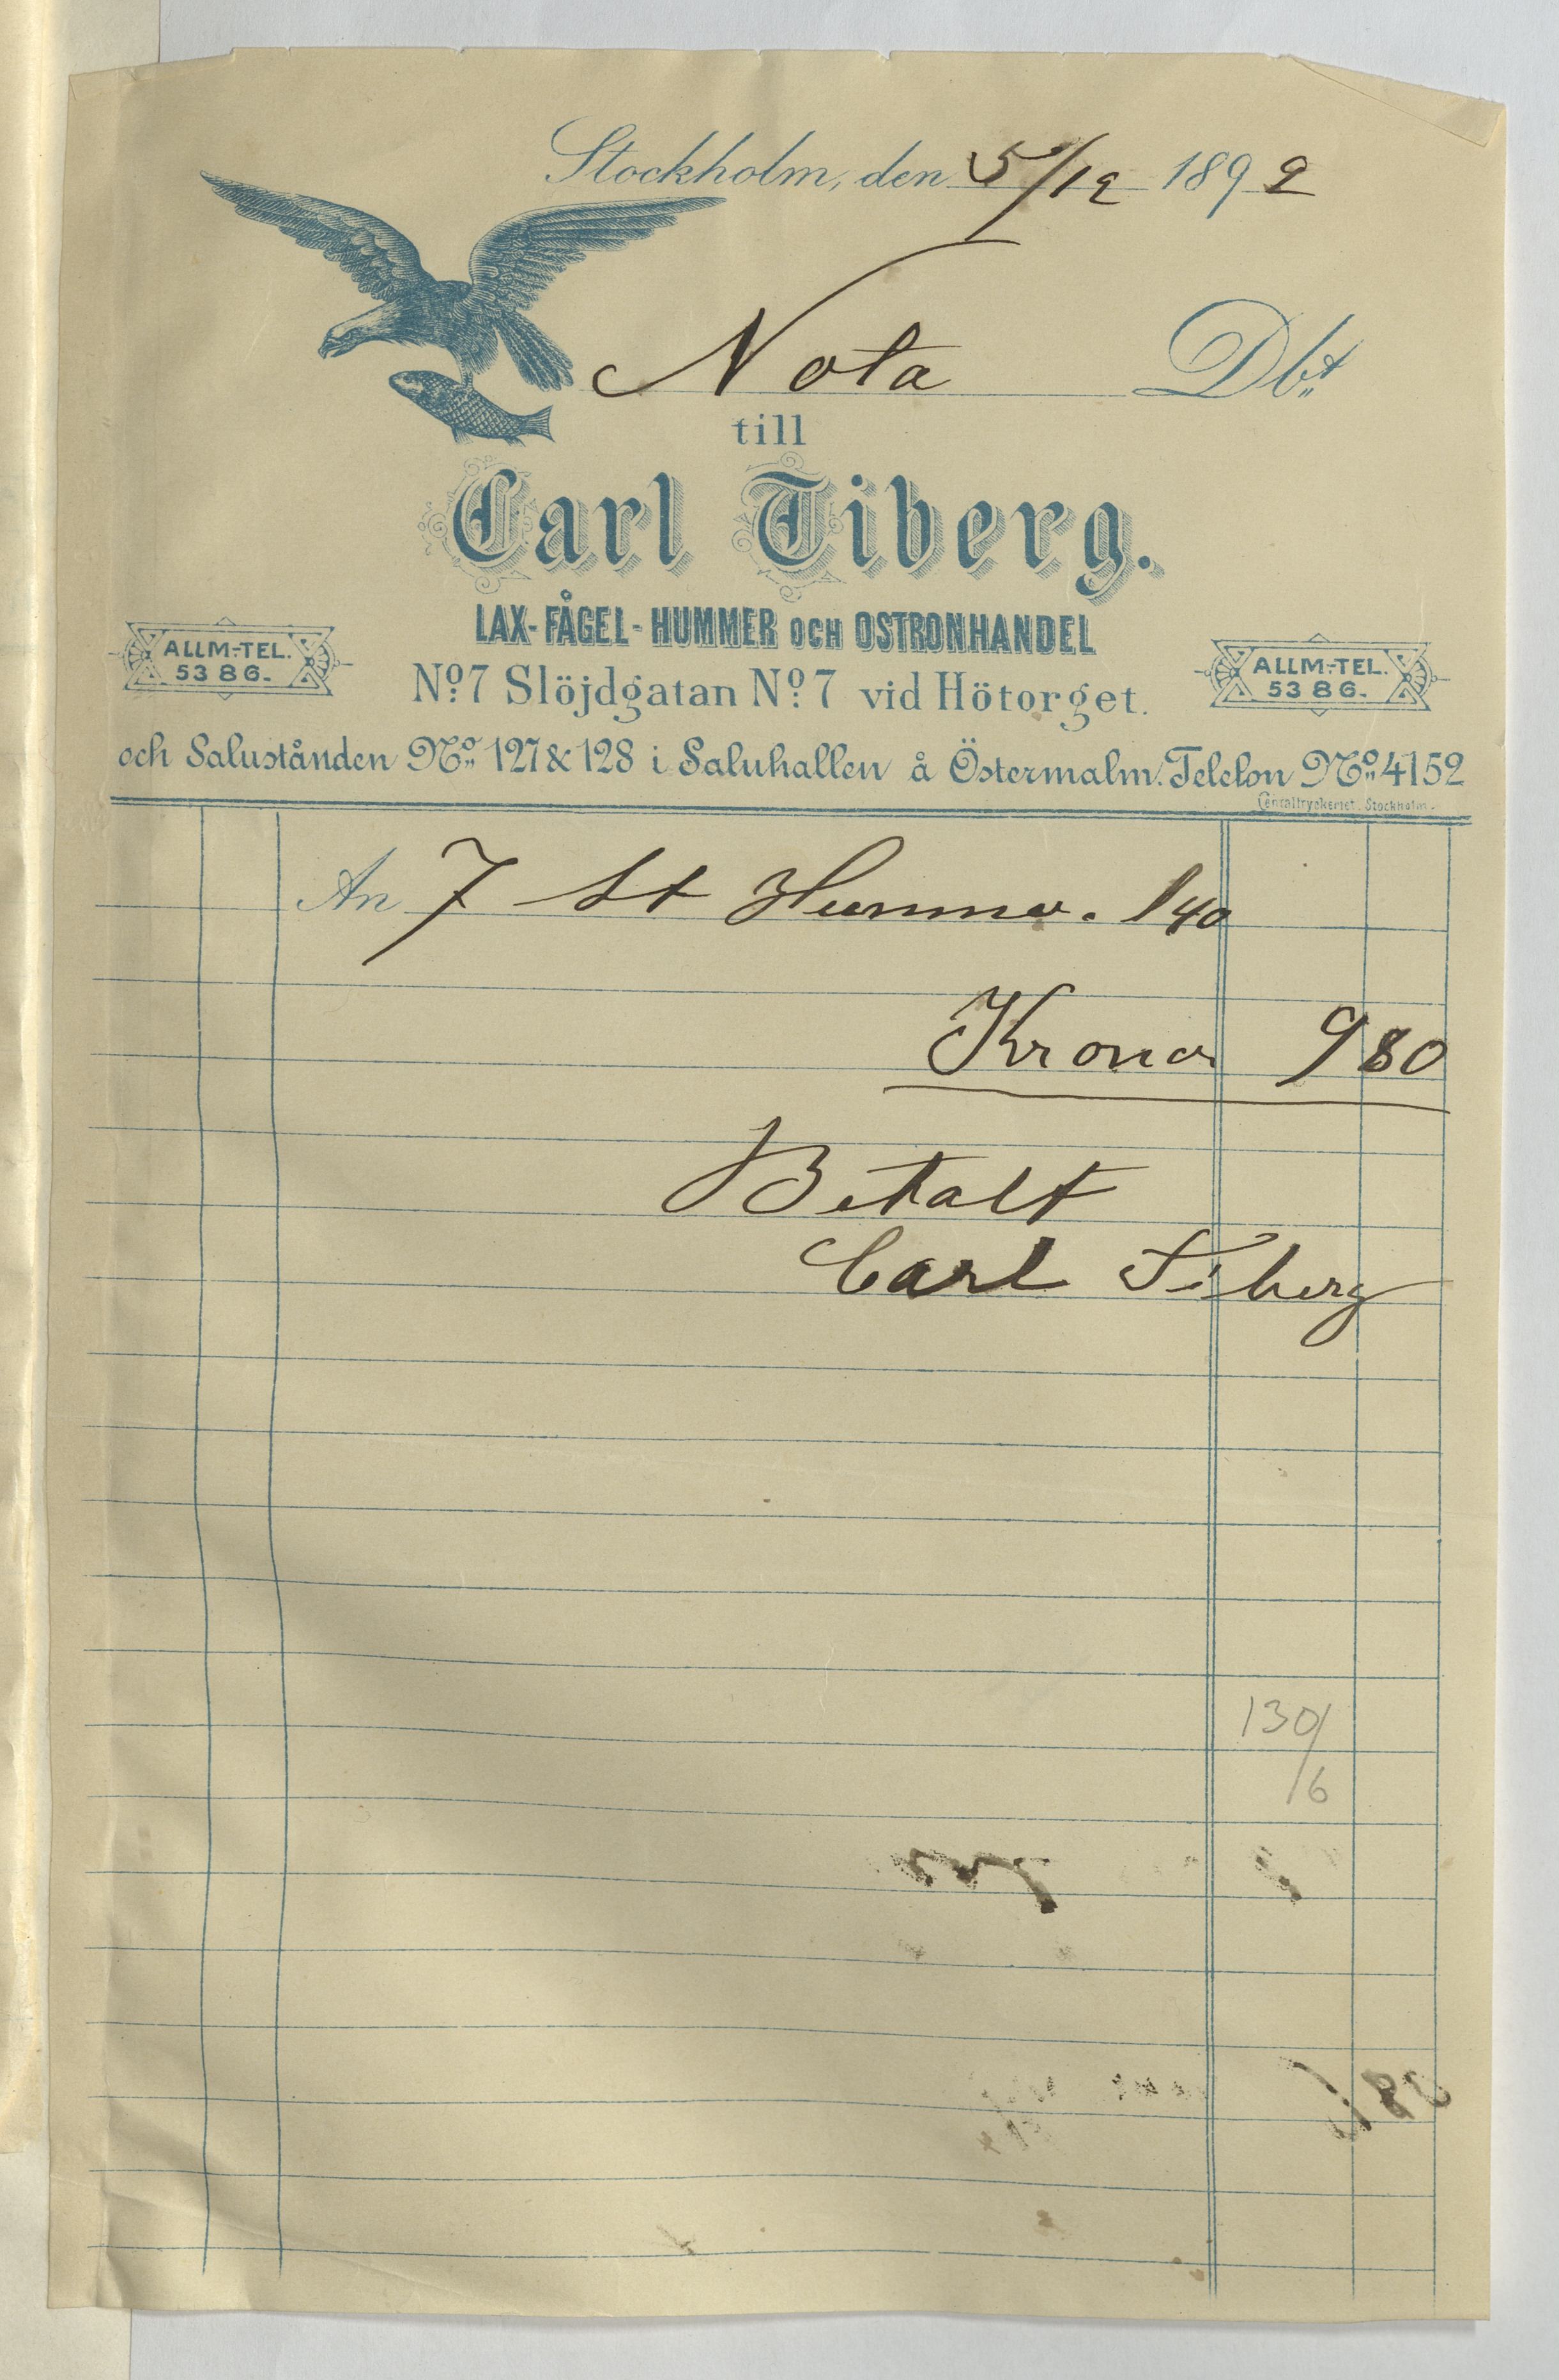 Stockholm, den 5/12 1892
Nota Dbt
till
Carl Tiberg.
LAX-FÅGEL-HUMMER OCH OSTRONHANDEL
ALLM.-TEL. 5386.
No 7 Slöjdgatan No 7 vid Hötorget.
ALLM.-TEL. 5386.
och Saluständen No 127 & 128 i Saluhallen å Östermalm. Telefon No 4152
Centraltryckeriet. Stockholm.
An 7 st Hummer. 140
Kronor 980
Betalt
Carl Tiberg
130/
/6